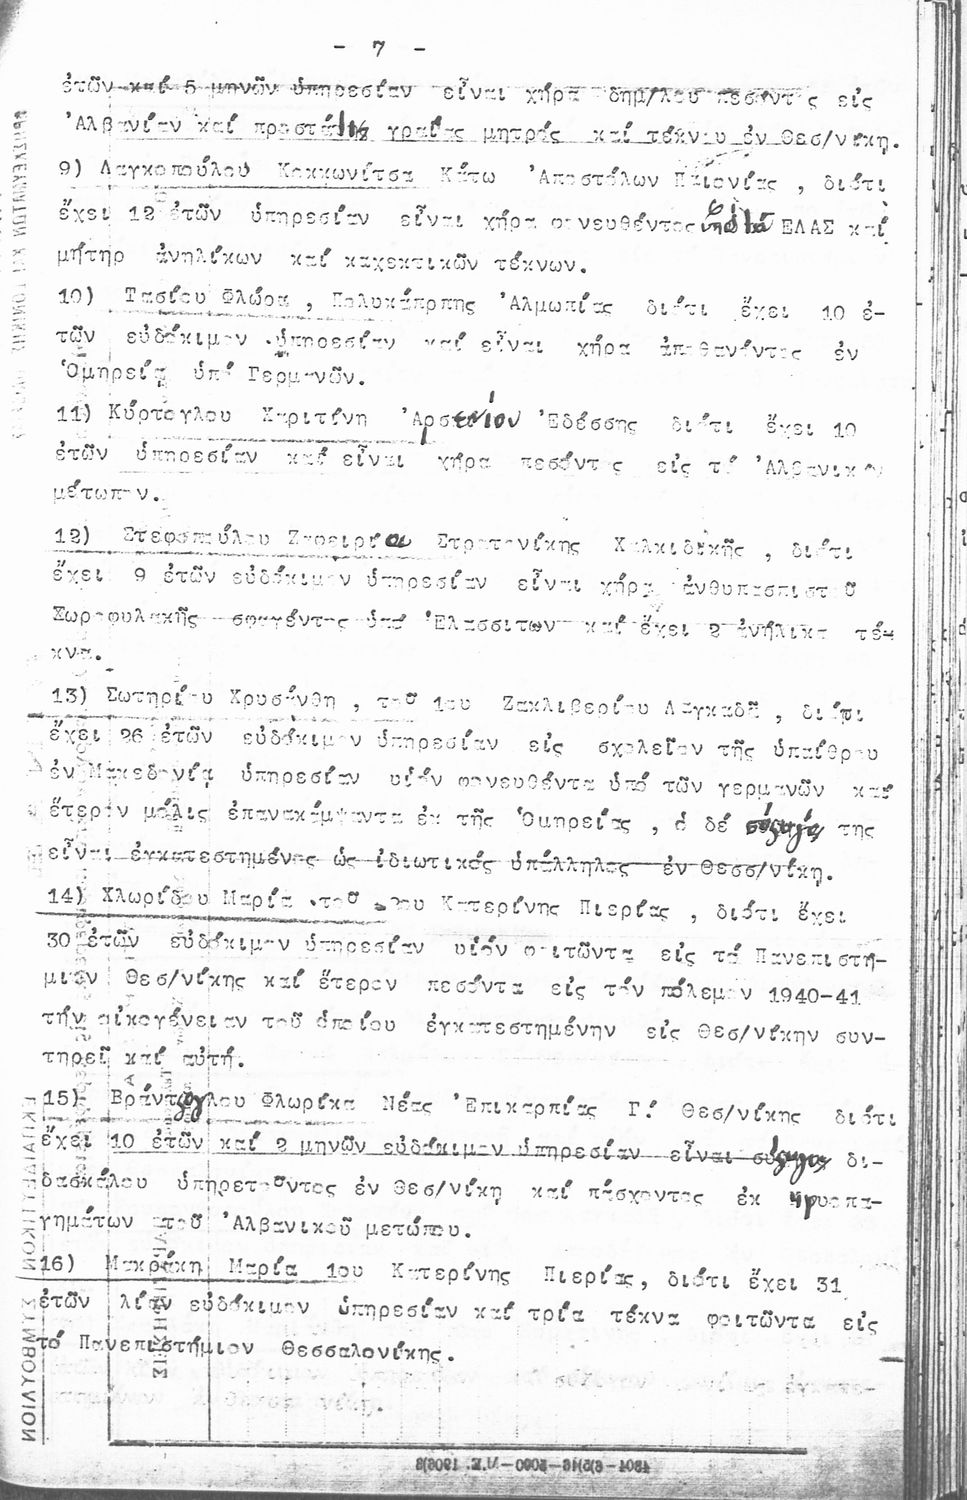 - 7 -
ἐτῶν καί 5 μηνῶν ὑπηρεσίαν εἶναι χήρα δημ/λου πεσόντος εἰς
Ἀλβανίαν καί προστάτις γραίας μητρός καί τέκνου ἐν Θεσ/νίκη.
9) Λαγκοπούλου Κοκκωνίτσα Κάτω Ἀποστόλων Παιονίας , διότι
ἔχει 12 ἐτῶν ὑπηρεσίαν εἶναι χήρα φονευθέντος ὑπό τοῦ ΕΛΑΣ καί
μήτηρ ἀνηλίκων καί καχεκτικῶν τέκνων.
10) Τασίου Φλώρα , Πολυκάρπης Ἀλμωπίας διότι ἔχει 10 ἐ-
τῶν εὐδόκιμον ὑπηρεσίαν καί εἶναι χήρα ἀποθανόντος ἐν
Ὁμηρεία ὑπό Γερμανῶν.
11) Κύρτογλου Χαριτίνη Ἀρσενίου Ἐδέσσης διότι ἔχει 10
ἐτῶν ὑπηρεσίαν καί εἶναι χήρα πεσόντος εἰς τό Ἀλβανικόν
μέτωπον.
12) Στεφοπούλου Ζαφειρία Στρατονίκης Χαλκιδικῆς , διότι
ἔχει 9 ἐτῶν εὐδόκιμον ὑπηρεσίαν εἶναι χήρα ἀνθυπασπιστοῦ
Χωροφυλακῆς σφαγέντος ὑπό Ἐλασσιτων καί ἔχει 2 ἀνήλικα τέ-
κνα.
13) Σωτηρίου Χρυσάνθη , τοῦ 1ου Ζακλιβερίου Λαγκαδᾶ , διότι
ἔχει 26 ἐτῶν εὐδόκιμον ὑπηρεσίαν εἰς σχολεῖαν τῆς ὑπαίθρου
ἐν Μακεδονίᾳ ὑπηρεσίαν υἱόν φονευθέντα ὑπό τῶν γερμανῶν καί
ἕτερον μόλις ἐπανακάμψαντα ἐκ τῆς Ὁμηρείας , ὁ δέ σύζυγός της
εἶναι ἐγκατεστημένος ὡς ἰδιωτικός ὑπάλληλος ἐν Θεσσ/νίκη.
14) Χλωρίδου Μαρία τοῦ 2ου Κατερίνης Πιερίας , διότι ἔχει
30 ἐτῶν εὐδόκιμον ὑπηρεσίαν υἱόν φοιτῶντα εἰς τό Πανεπιστή-
μιον Θεσ/νίκης καί ἕτερον πεσόντα εἰς τόν πόλεμον 1940-41
τήν οἰκογένειαν τοῦ ὁποίου ἐγκατεστημένην εἰς Θεσ/νίκην συν-
τηρεῖ καί αὐτή.
15) Βράντζογλου Φλωρίκα Νέας Ἐπικαρπίας Γ. Θεσ/νίκης διότι
ἔχει 10 ἐτῶν καί 2 μηνῶν εὐδόκιμον ὑπηρεσίαν εἶναι σύζυγος δι-
δασκάλου ὑπηρετοῦντος ἐν Θεσ/νίκη καί πάσχοντος ἐκ κρυοπα-
γημάτων τοῦ Ἀλβανικοῦ μετώπου.
16) Μακράκη Μαρία 1ου Κατερίνης Πιερίας, διότι ἔχει 31
ἐτῶν λίαν εὐδόκιμον ὑπηρεσίαν καί τρία τέκνα φοιτῶντα εἰς
τό Πανεπιστήμιον Θεσσαλονίκης.